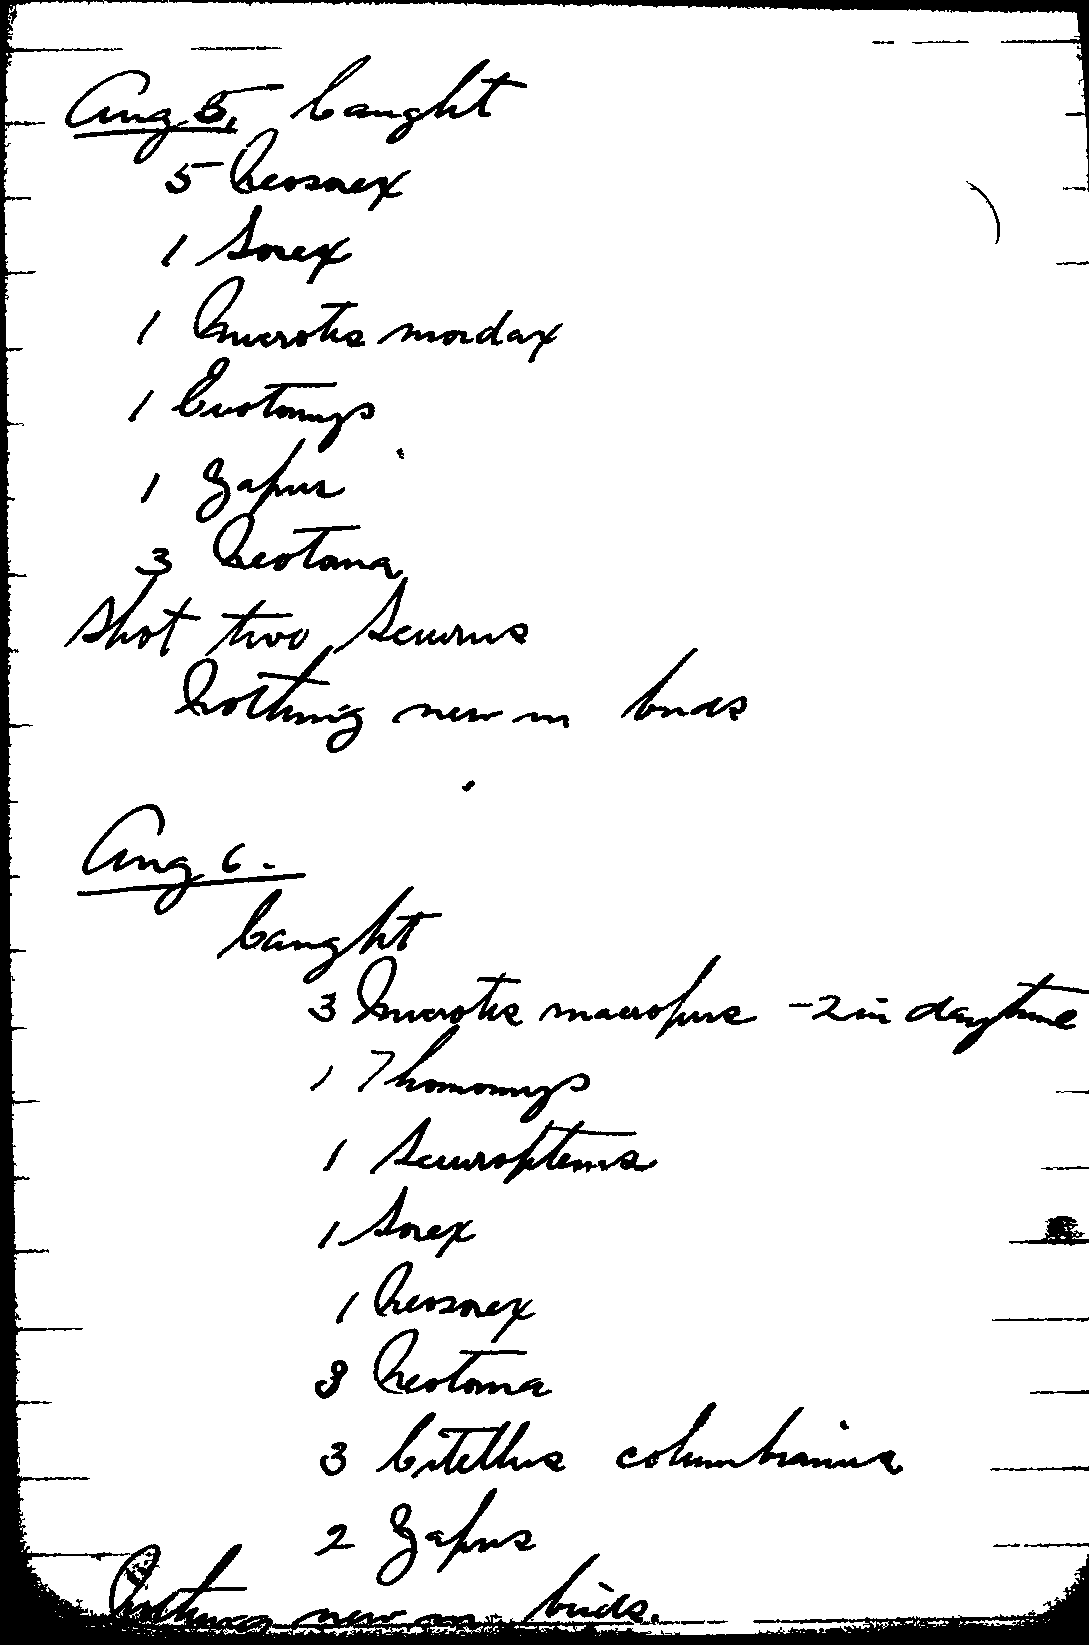 Aug 5, Caught
5 Neosorex
1 Sorex
1 Microtis mordax
1 Evotomys
1 Zapus
3 Neotoma
Shot two Sciurus
Nothing new in birds
Aug 6.
Caught
3 Microtis macropus - 2 in daytime
1 Thomomys
1 Sciuropterus
1 Sorex
1 Neosorex
3 Neotoma
3 Citellus columbianus
2 Zapus
Nothing new in birds.